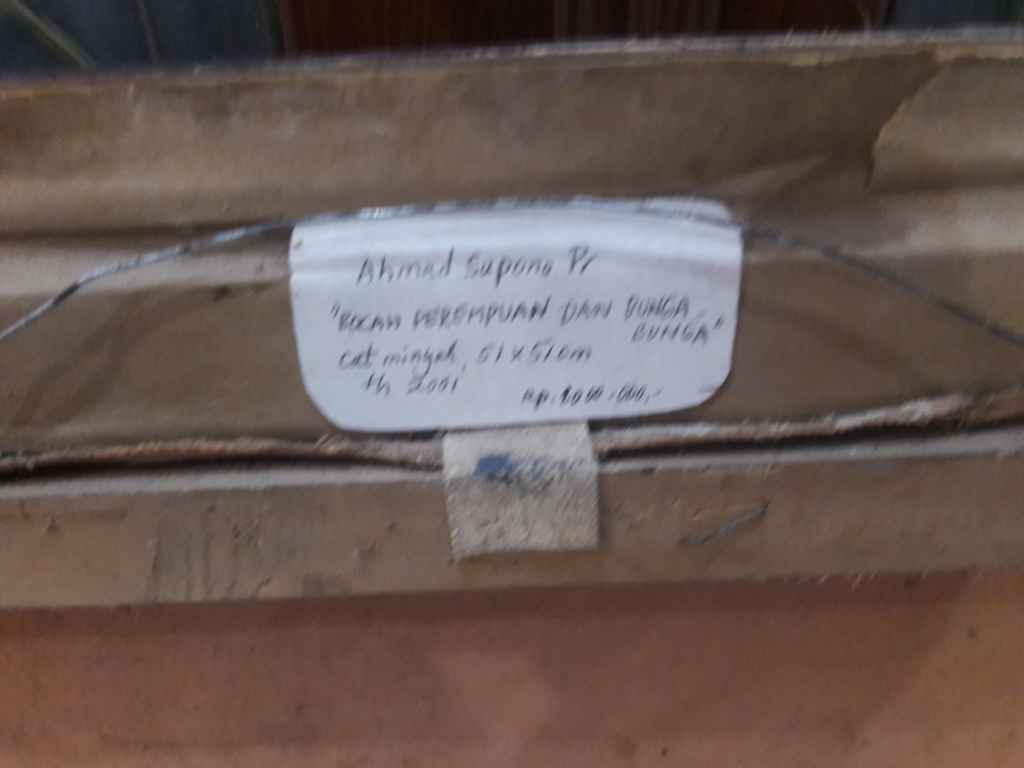 Ahmad Supono Pr
"BOCAH PEREMPUAN DAN BUNGA
BUNGA"
cat minyak, 51 x 51 cm
th 2001
Rp. .000,-